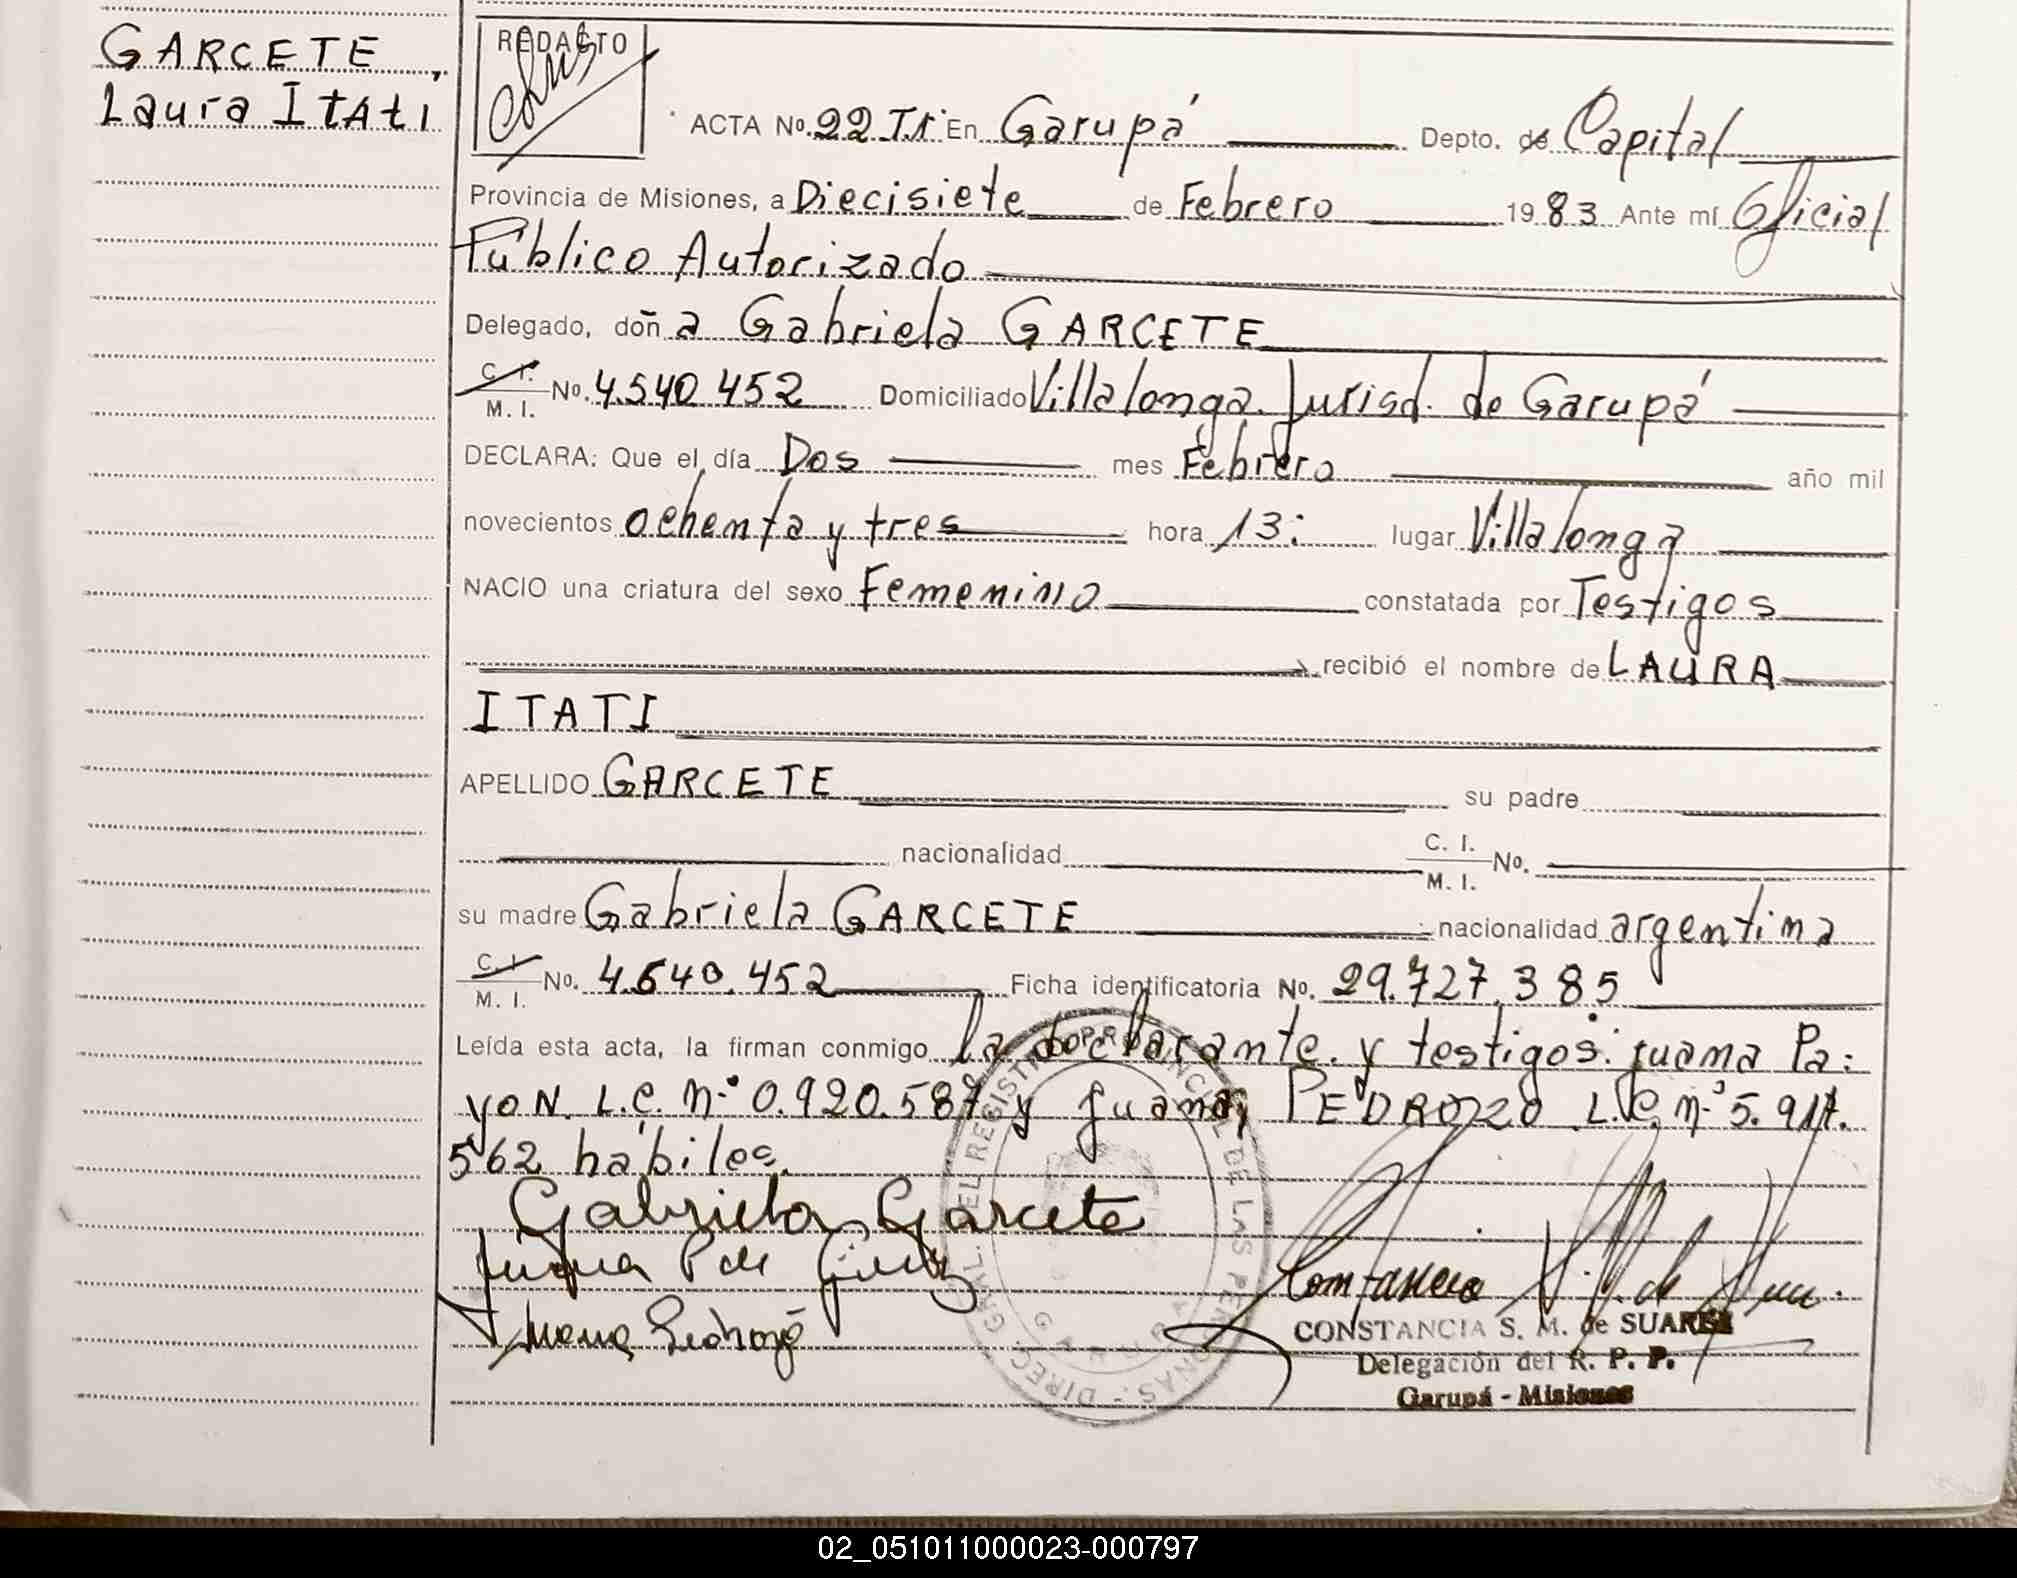 GARCETE,
Laura Itati
REDACTO
ACTA No. 22 Tº I En Garupá Depto. de Capital
Provincia de Misiones, a Diecisiete de Febrero 1983 Ante mí Oficial
Público Autorizado
Delegado, doña Gabriela GARCETE
C. I.
M. I. No. 4.540.452 Domiciliado Villalonga. Jurisd. de Garupá
DECLARA: Que el día Dos mes Febrero año mil
novecientos ochenta y tres hora 13: lugar Villalonga
NACIO una criatura del sexo Femenino constatada por Testigos
recibió el nombre de LAURA
ITATI
APELLIDO GARCETE su padre
nacionalidad C. I.
M. I. No.
su madre Gabriela GARCETE nacionalidad argentina
C. I.
M. I. No. 4.640.452 Ficha identificatoria No. 29.727.385
Leída esta acta, la firman conmigo La declarante. y testigos: juana Pa:
yon. L.C. nº 0.920.587 y juana PEDROZO L.C. nº 5.917.
562 hábiles.
Gabriela Garcete
Juana P de
Juana
CONSTANCIA S. M. de SUAREZ
Delegación del R. P. P.
Garupá - Misiones
DIREC. GRAL. DEL REGISTRO PROVINCIAL DE LAS PERSONAS.-
GARUPA
02_051011000023-000797